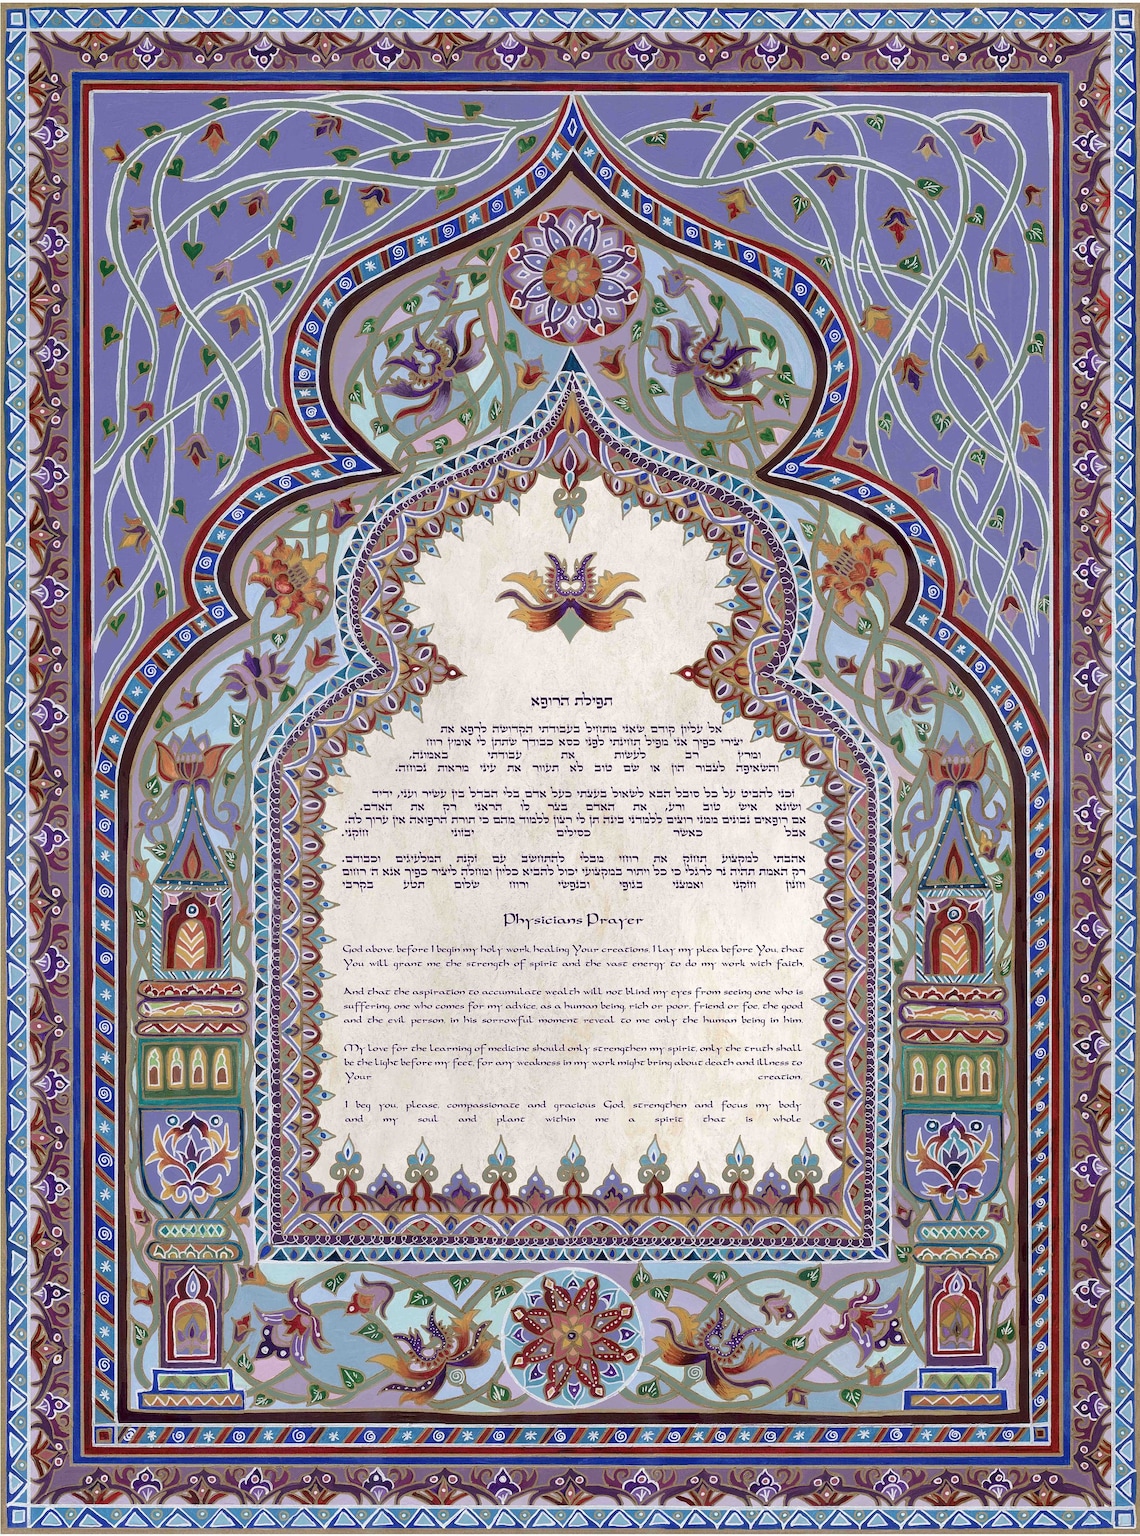 תפילת הרופא
אל עליון קודם שאני מתחיל בעבודתי הקדושה לרפא את
יצירי כפיך אני מפיל תחינתי לפני כסא כבודך שתתן לי אומץ רוח
ומרץ רב לעשות את עבודתי באמונה,
והשאיפה לצבור הון או שם טוב לא תעוור את עיני מראות נכוחה.
זכני להביט על כל סובל הבא לשאול בעצתי כעל אדם בלי הבדל בין עשיר ועני, ידיד
ושונא איש טוב ורע, את האדם בצר לו הראני רק את האדם.
אם רופאים נבונים ממני רוצים ללמדני בינה תן לי רצון ללמוד מהם כי תורת הרפואה אין ערוך לה,
אבל כאשר כסילים יבזוני חזקני.
אהבתי למקצוע תחזק את רוחי מבלי להתחשב עם זקנת המלעיגים וכבודם.
רק האמת תהיה נר לרגלי כי כל ויתור במקצועי יכול להביא כליון ומחלה ליציר כפיך אנא ה' רחום
וחנון חזקני ואמצני בגופי ובנפשי ורוח שלום תטע בקרבי
Physicians Prayer
God above, before I begin my holy work, healing Your creations, I lay my plea before You, that
You will grant me the strength of spirit and the vast energy to do my work with faith,
And that the aspiration to accumulate wealth will not blind my eyes from seeing one who is
suffering, one who comes for my advice, as a human being, rich or poor, friend or foe, the good
and the evil person, in his sorrowful moment reveal to me only the human being in him.
My love for the learning of medicine should only strengthen my spirit, only the truth shall
be the light before my feet, for any weakness in my work might bring about death and illness to
Your creation.
I beg you, please, compassionate and gracious God, strengthen and focus my body
and my soul and plant within me a spirit that is whole